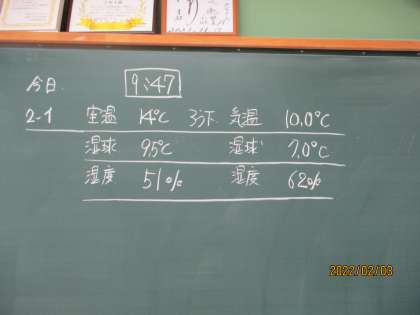 今日 9:47
2-1 室温 14℃ ろう下 気温 10.0℃
湿球 9.5℃ 湿球 7.0℃
湿度 51% 湿度 62%
2022/02/03